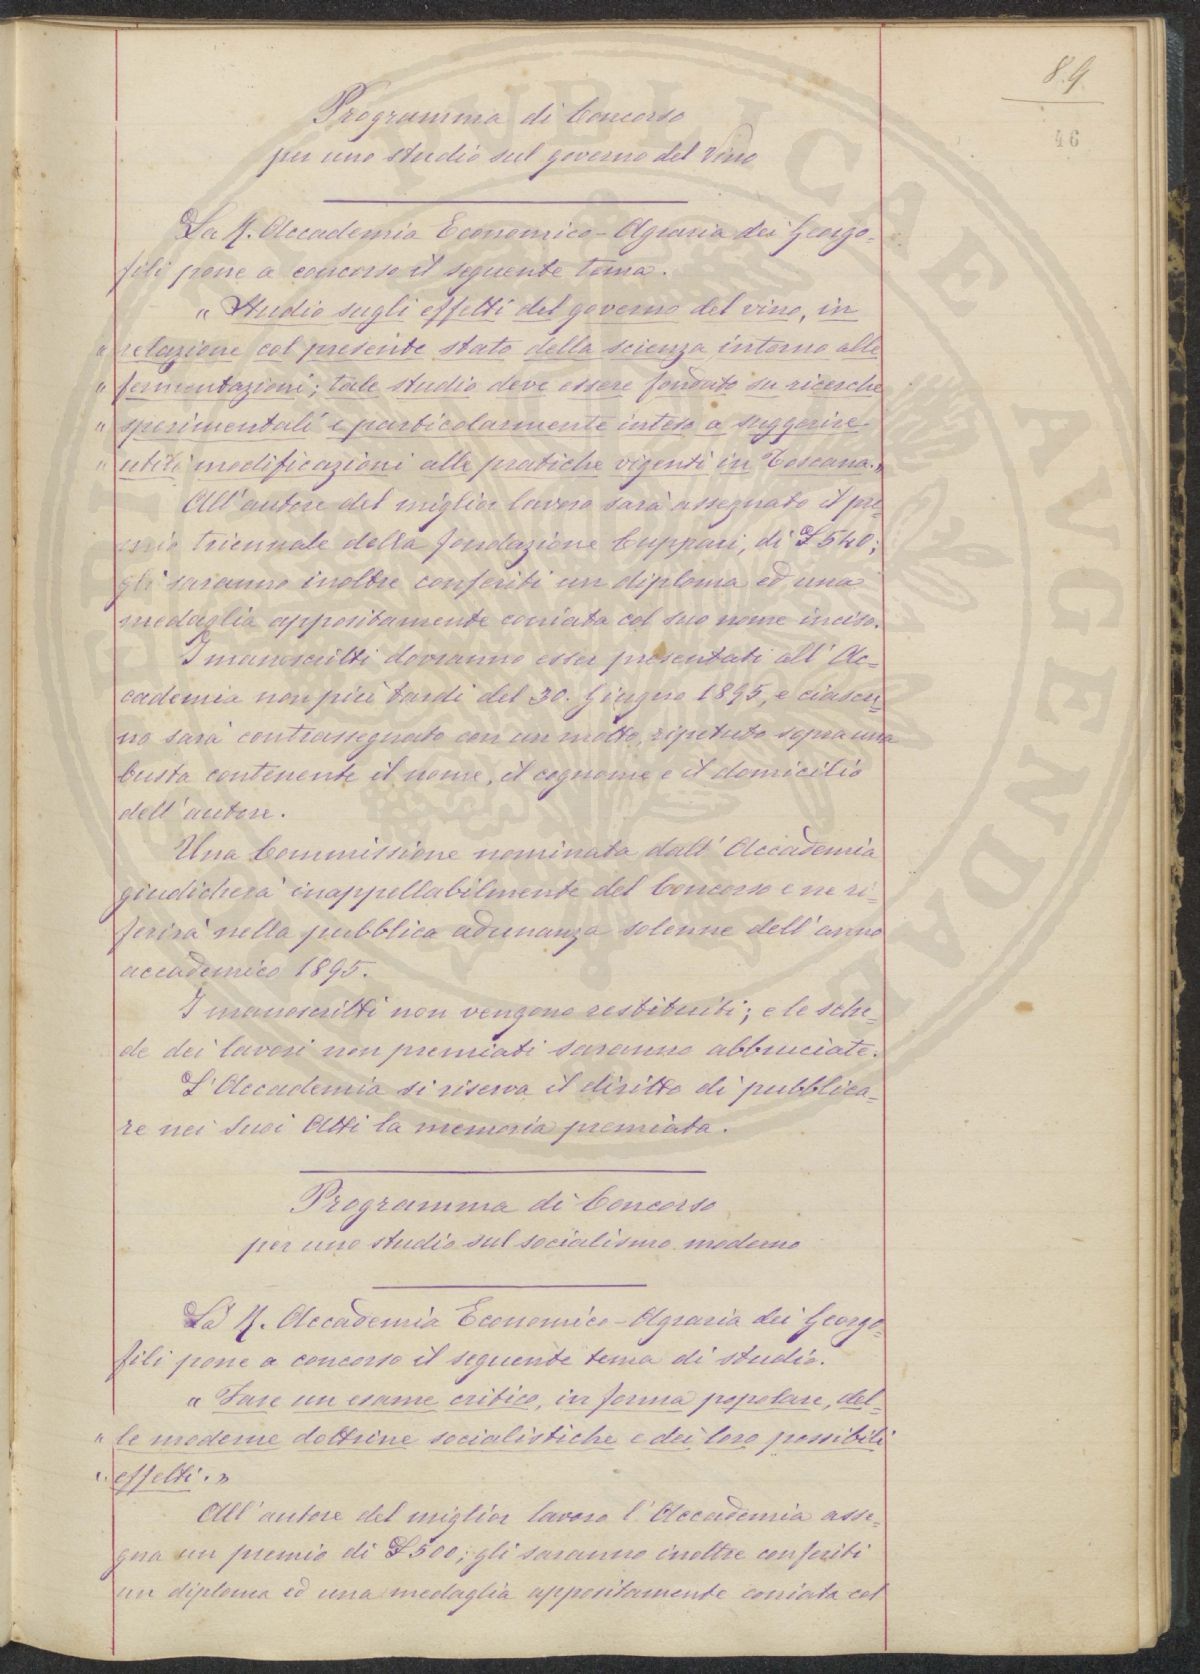 89
46
Programma di Concorso
per uno studio sul governo del vino
La R. Accademia Economico-Agraria dei Georgo=
fili pone a concorso il seguente tema.
" Studio sugli effetti del governo del vino, in
" relazione col presente stato della scienza intorno alle
" fermentazioni; tale studio deve essere fondato su ricerche
" sperimentali e particolarmente inteso a suggerire
" utili modificazioni alle pratiche vigenti in Toscana."
All'autore del miglior lavoro sarà assegnato il pre=
mio triennale della fondazione Cuppari, di £ 540;
gli saranno inoltre conferiti un diploma ed una
medaglia appositamente coniata col suo nome inciso.
I manoscritti dovranno esser presentati all'Ac=
cademia non più tardi del 30. Giugno 1895, e ciascu=
no sarà contrassegnato con un motto, ripetuto sopra una
busta contenente il nome, il cognome e il domicilio
dell'autore.
Una Commissione nominata dall'Accademia
giudicherà inappellabilmente del Concorso e ne ri=
ferirà nella pubblica adunanza solenne dell'anno
accademico 1895.
I manoscritti non vengono restituiti; e le sche=
de dei lavori non premiati saranno abbruciate.
L'Accademia si riserva il diritto di pubblica=
re nei suoi Atti la memoria premiata.
Programma di Concorso
per uno studio sul socialismo moderno
La R. Accademia Economico-Agraria dei Georgo=
fili pone a concorso il seguente tema di studio.
" Fare un esame critico, in forma popolare, del=
" le moderne dottrine socialistiche e dei loro possibili
" effetti."
All'autore del miglior lavoro l'Accademia asse=
gna un premio di £ 500; gli saranno inoltre conferiti
un diploma ed una medaglia appositamente coniata col
PVBLICAE AVGENDAE